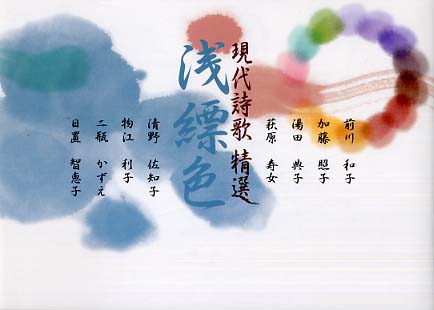 現代詩歌 精選
浅縹色
前川 和子
加藤 照子
湯田 典子
萩原 寿女
清野 佐知子
物江 利子
二瓶 かずえ
日置 智恵子